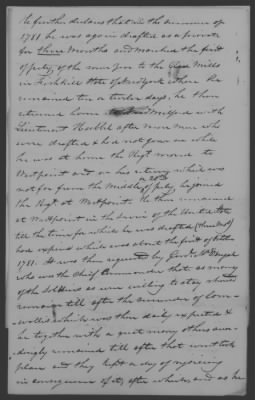 He further declares that in the summer of
1781 he was again drafted as a private
for three months and marched the first
of July of the same year to the Glass Mills
in Fishkill State of New York where he
remained ten or twelve days, he then
returned home Milford with
Lieutenant Hubbel after more men who
were drafted & had not gone on while
he was at home the Regt moved to
Westpoint and on his return which was
not far from the middle of July he joined
the Regt at Westpoint. He then remained
at Westpoint in the service of the United States
till the time for which he was drafted (three mos)
had expired which was about the first of October
1781. He was then requested by Genl
who was the Chief Commander that as many
of the soldiers as were willing to stay should
remain till after the surrender of Corn-
wallis which was then daily expected &
he together with a great many others accor-
dingly remained till after that went took
place and they kept a day of rejoicing
in consequence of it, after which and as he